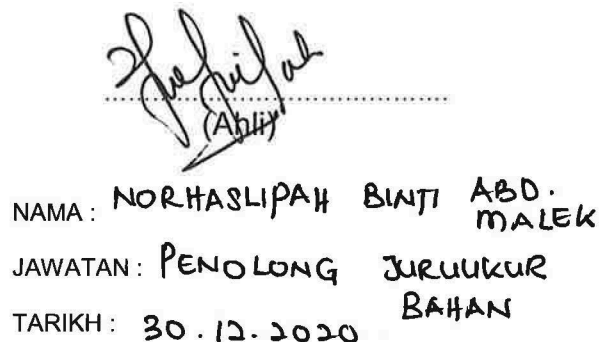 (Ahli)
NAMA : NORHASLIPAH BINTI ABD.
MALEK
JAWATAN : PENOLONG JURUUKUR
BAHAN
TARIKH : 30.12.2020